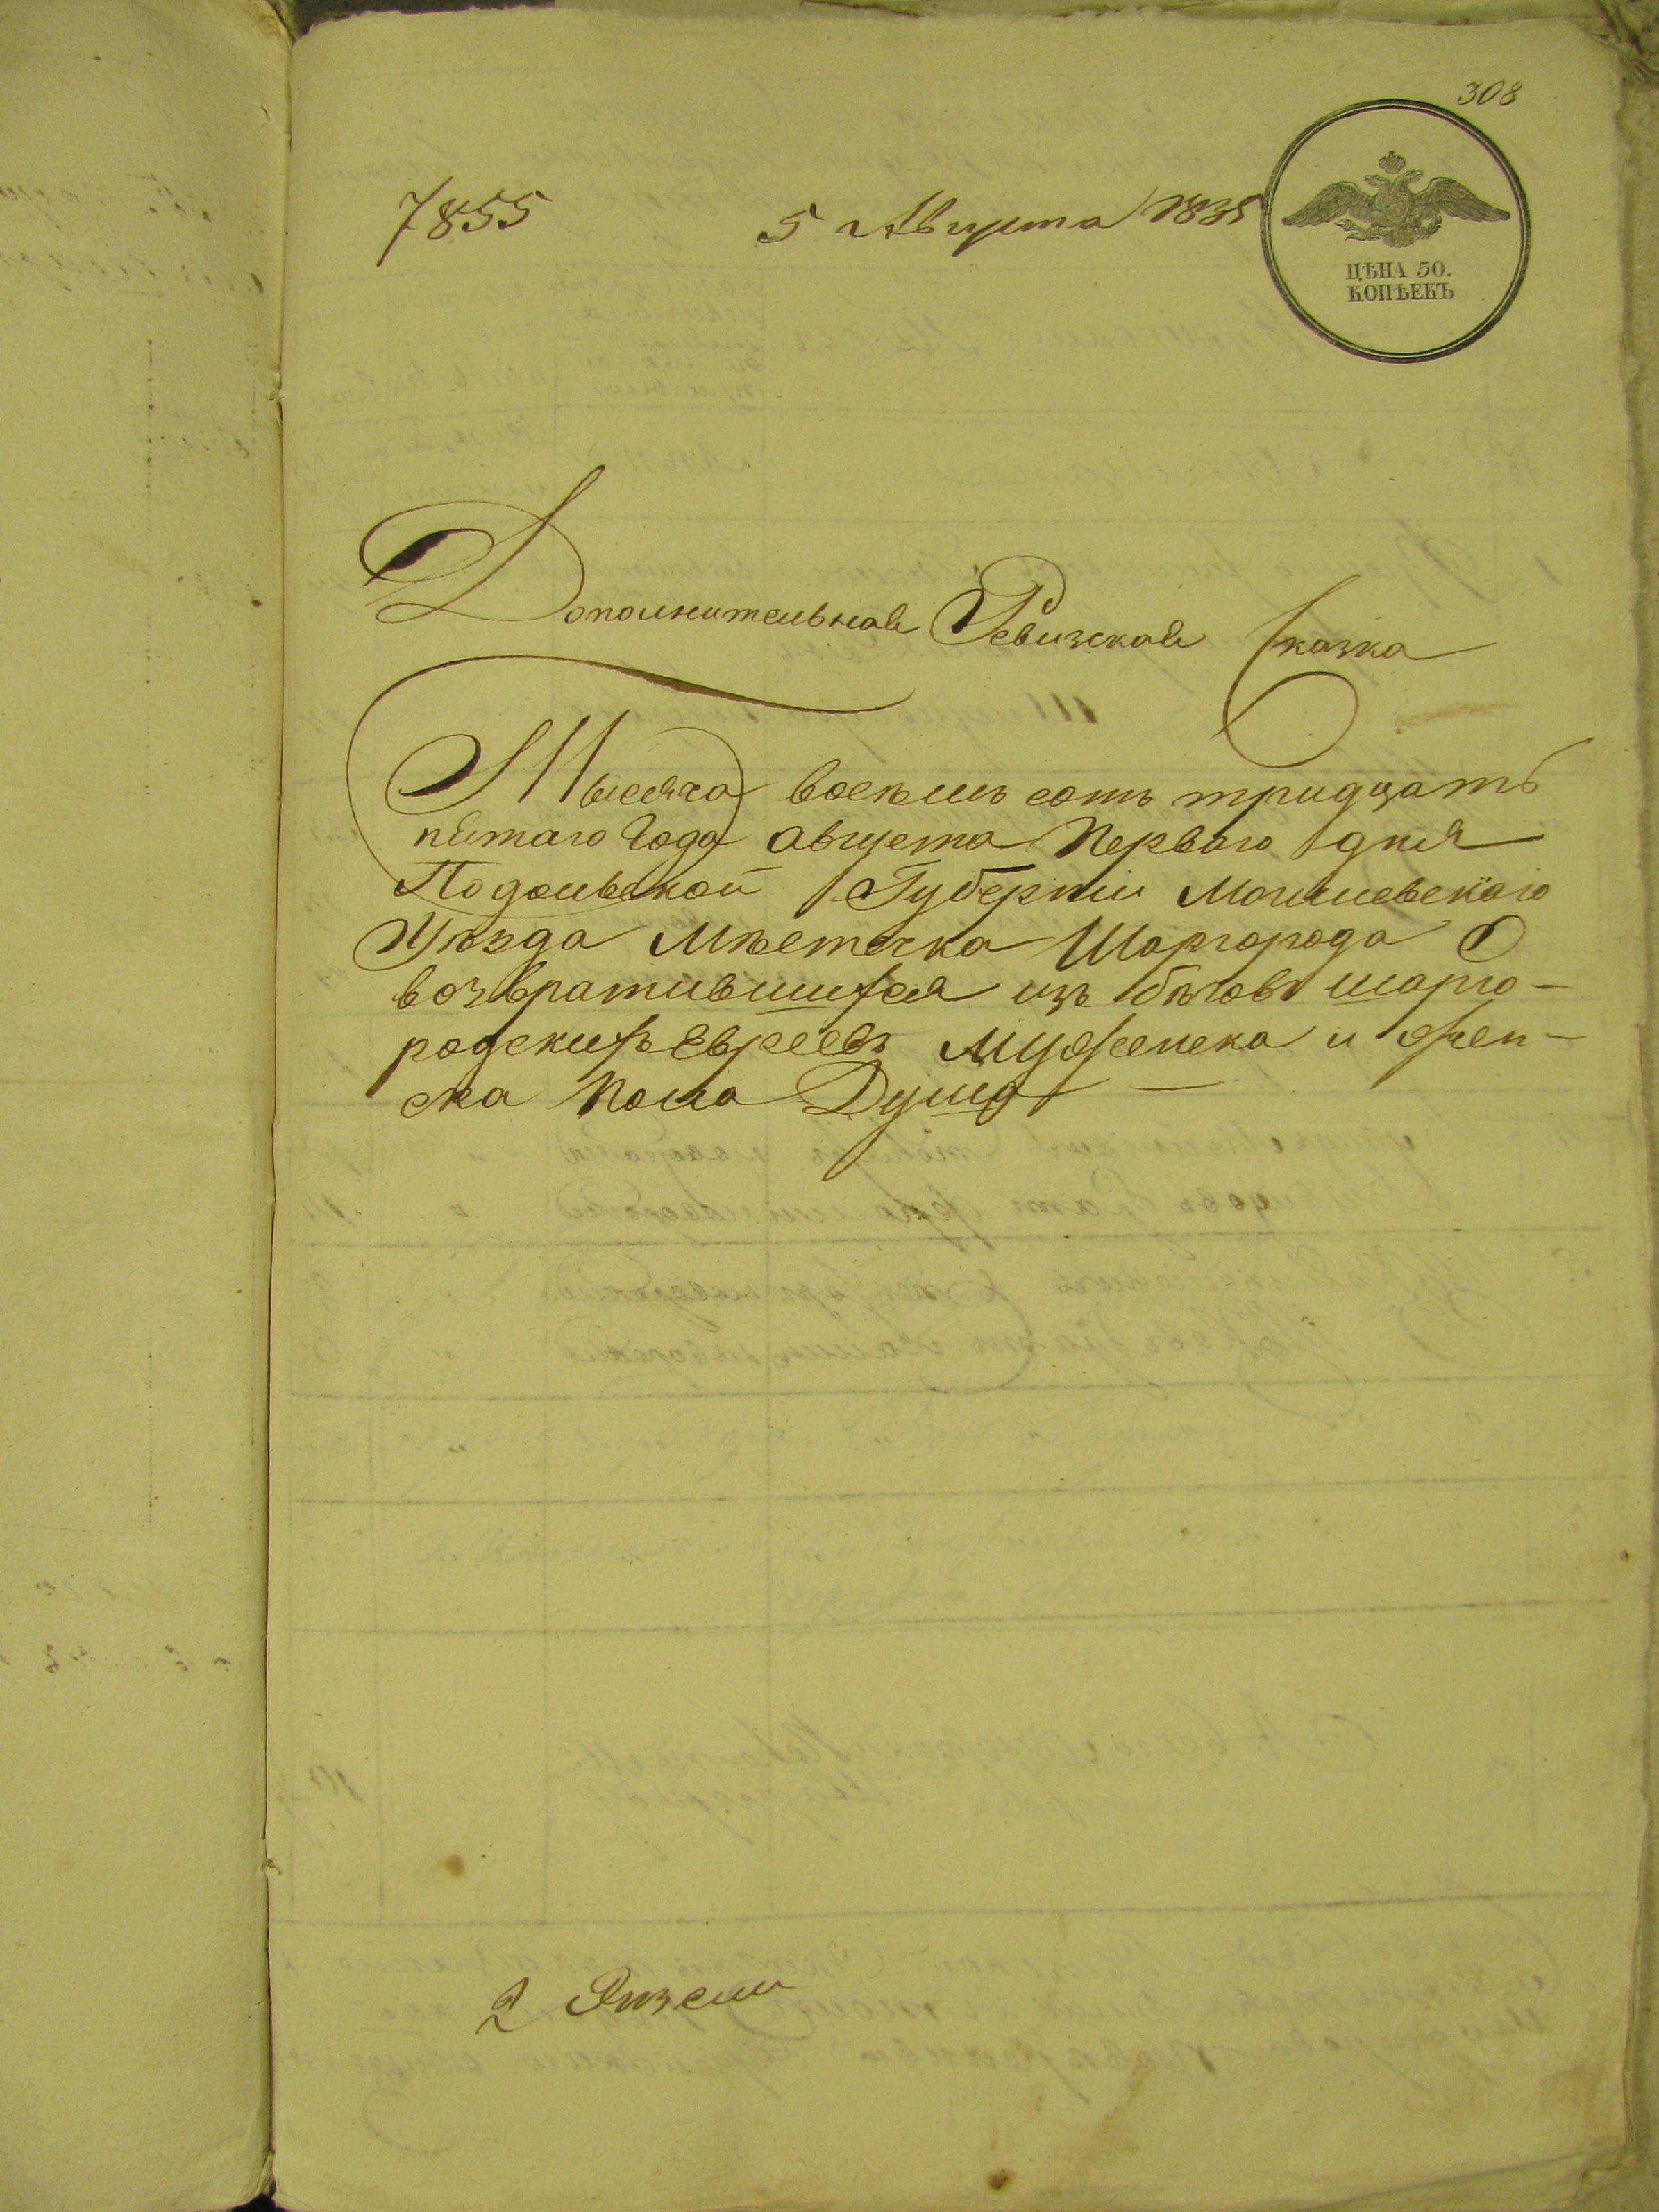 308
7855
5 Августа 1835
ЦѢНА 50.
КОПѢЕКЪ
Дополнительная Ревизская Сказка
Тысяча восемь сотъ тридцать
пятаго Года Августа Перваго дня
Подольской Губерніи Могилевскаго
Уѣзда Мѣстечка Шаргорода О
возвратившихся изъ бѣговъ шарго-
родскихъ Евреевъ Мужеска и жен-
ска пола Душъ
2